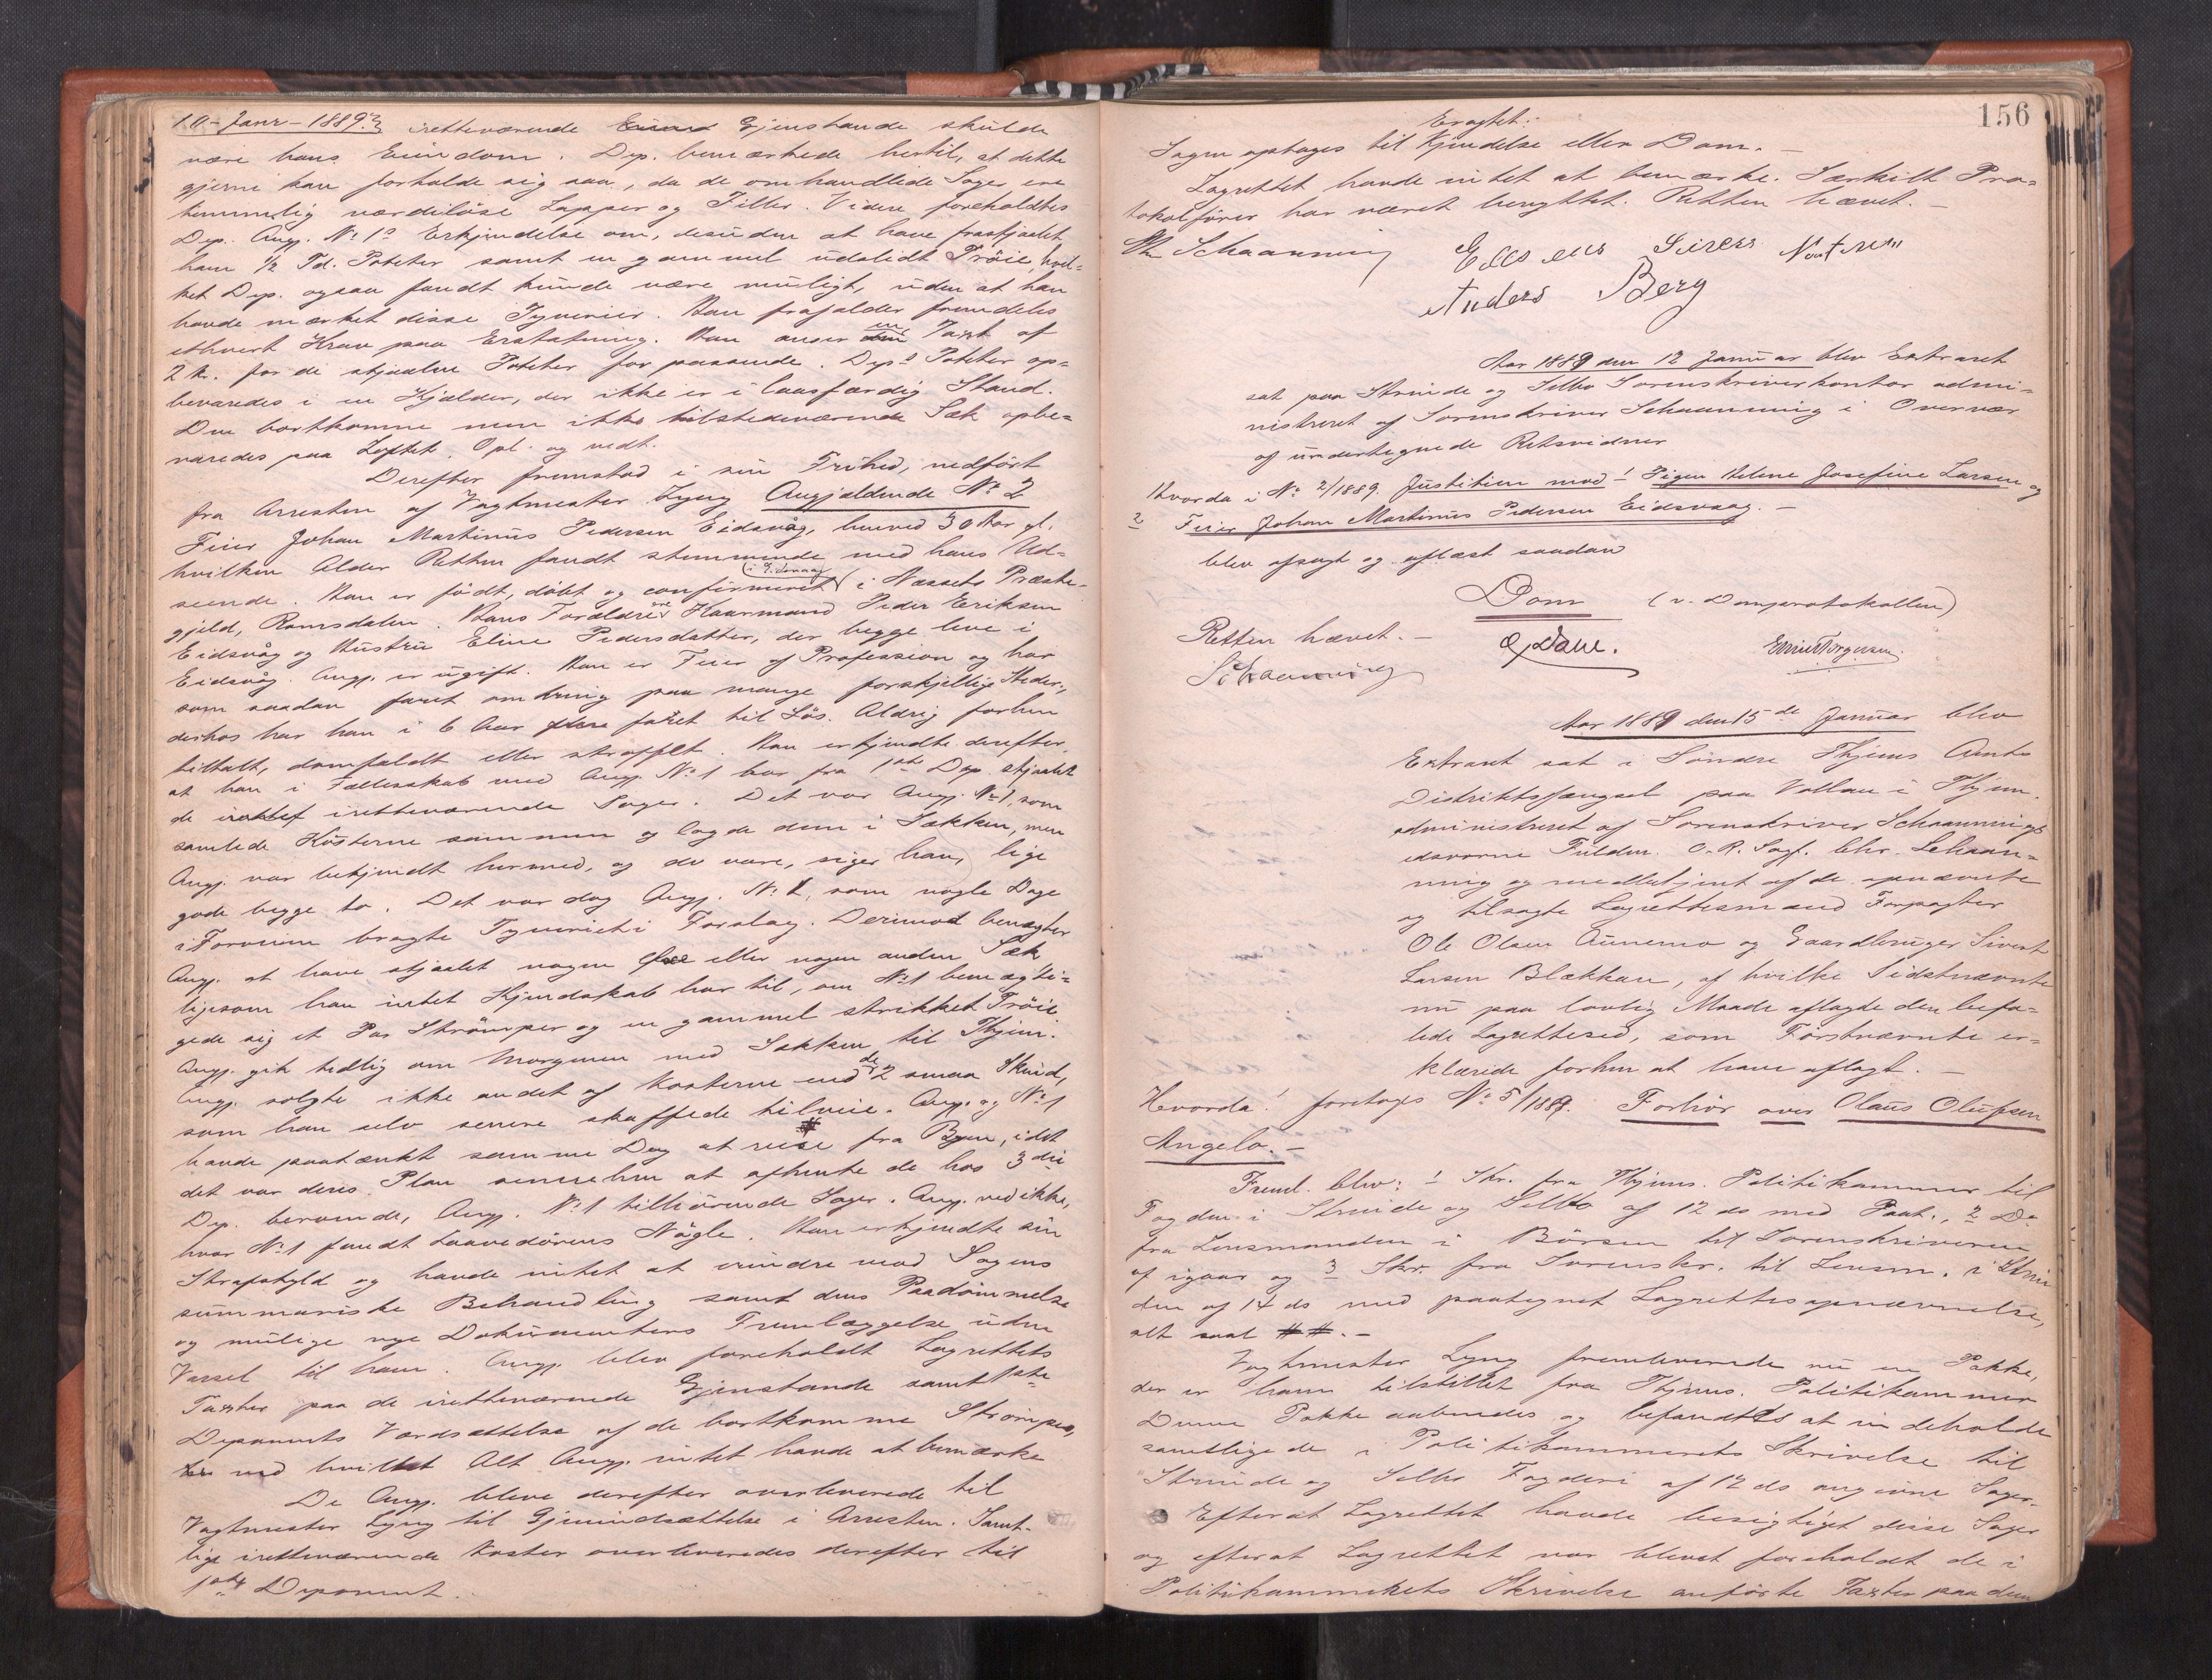 10 - Janr - 1889. iretteværende Gjenstande skulde
være hans Eiendom. Dep. bemærkede hertil, at dette
gjerne kan forholde sig saa, da de omhandlede Sager ere
temmelig værdiløse Lapper og Filler. Videre foreholdtes
Dep. Angj. No 1s Erkjendelse om, desuden at have frastjaalet
ham 1/2 Td. Poteter samt en gammel udslidt Trøie, hvil-
ket Dep. ogsaa fandt kunde være muligt, uden at han
havde mærket disse Tyverier. Han frafalder fremdeles
ethvert Krav paa Erstatning. Han anser en Taxt af
2 Kr. for de stjaalne Poteter for passende. Dep.s Poteter op-
bevaredes i en Kjælder, der ikke er i laasfærdig Stand.
Den bortkomne men ikke tilstedeværende Sæk opbe-
varedes paa Loftet. Opl. og vedt.
Derefter fremstod i sin Frihed, nedført
fra Arresten af Vagtmester Lyng Angjældende No 2
Feier Johan Martinus Pedersen Eidsvåg, henved 30 Aar gl.
hvilken Alder Retten fandt stemmende med hans Ud-
seende. Han er født, døbt og confirmeret (i Eidsvaag) i Næssets Præste-
gjeld, Romsdalen. Hans Forældre ere Haarmand Peder Eriksen
Eidsvåg og Hustru Eline Pedersdatter, der begge leve i
Eidsvåg. Angj. er ugift. Han er Feier af Profession og har
som saadan faret omkring paa mange forskjellige Steder,
derhos har han i 6 Aar faret til Søs. Aldrig forhen
tiltalt, domfældt eller straffet. Han erkjendte derefter,
at han i Fællesskab med Angj. No 1 har fra 1ste Dep. stjaalet
de iretteværende Sager. Det var Angj. No 1, som
samlede Kosterne sammen og lagde dem i Sækken, men
Angj. var bekjendt hermed, og de vare, siger han, lige
gode begge to. Det var dog Angj. No 1, som nogle Dage
i Forveien bragte Tyveriet i Forslag. Derimod benægter
Angj. at have stjaalet nogen eller nogen anden Sæk
ligesom han intet Kjendskab har til, om No 1 bemægti-
gede sig et Par Strømper og en gammel strikket Trøie
Angj. gik tidlig om Morgenen med Sækken til Thjem.
Angj. solgte ikke andet af Kosterne end de 2 smaa Skind,
som han selv senere skaffede tilveie. Angj. og No 1
havde paatænkt samme Dag at reise fra Byen, idet
det var deres Plan senerehen at afhente de hos 3die
Dep. beroende, Angj. No 1 tilhørende Sager. Angj. ved ikke,
hvor No 1 fandt Laavedørens Nøgle. Han erkjendte sin
Strafskyld og havde intet at erindre mod Sagens
summariske Behandling samt dens Paadømmelse
og mulige nye Dokumenters Fremlæggelse uden
Varsel til ham. Angj. blev foreholdt Lagrettets
Taxter paa de iretteværende Gjenstande samt 1ste
Deponents Værdsættelse af de bortkomne Strømper,
ved hvilket Alt Angj. intet havde at bemærke
De Angj. bleve derefter overleverede til
Vagtmester Lyng til Gjenindsættelse i Arresten. Samt-
lige iretteværende Koster overleveredes derefter til
1ste Deponent.
156
Eragtet:
Sagen optages til Kjendelse eller Dom. -
Lagrettet havde intet at bemærke. Særskilt Pro-
tokolfører har været benyttet. Retten hævet. -
Schaanning
Anders Berg
Aar 1889 den 12 Januar blev Extraret
sat paa Strinde og Selbo Sorenskriverkontor admi-
nistreret af Sorenskriver Schaanning i Overvær
af undertegnede Retsvidner
Hvorda i No 2/1889. Justitien mod 1 Pigen Helene Josefine Larsen og
2 Feier Johan Martinus Pedersen Eidsvaag. -
blev afsagt og aflæst saadan
Dom (v. Domsprotokollen)
Retten hævet. -
Schaanning
Aar 1889 den 15de Januar blev
Extraret sat i Søndre Thjems Amts
Distriktsfængsel paa Vollan i Thjem.
administreret af Sorenskriver Schaannings
edsvorne Fuldm. O.R. Sagf. Chr. Schaan-
ning og medbetjent af de opnævnte
og tilsagte Lagrettesmænd Forpagter
Ole Olsen Aunemo og Gaardbruger Sivert
Larsen Blækkan, af hvilke Sidstnævnte
nu paa lovlig Maade aflagde den befa-
lede Lagrettesed, som Førstnævnte er-
klærede forhen at have aflagt. -
Hvorda! foretoges No 5/1889. Forhør over Olaus Olufsen
Angelo. -
Freml. blev: 1 Skr. fra Thjems. Politikammer til
Fogden i Strinde og Selbo af 12 ds med Paat., 2 Do
fra Lensmanden i Børsen til Sorenskriveren
af igaar og 3 Skr. fra Sorenskr. til Lensm. i Strin
den af 14 ds med paategnet Lagrettesopnævnelse,
alt saal ##. -
Vagtmester Lyng fremleverede nu en Pakke,
der er ham tilstillet fra Thjems. Politikammer
Denne Pakke aabnedes og befandtes at indeholde
samtlige de i Politikammerets Skrivelse til
Strinde og Selbo Fogderi af 12 ds angivne Sager.
Efterat Lagrettet havde besigtiget disse Sager
og efterat Lagrettet var blevet foreholdt de i
Politikammerets Skrivelse anførte Taxter paa dem